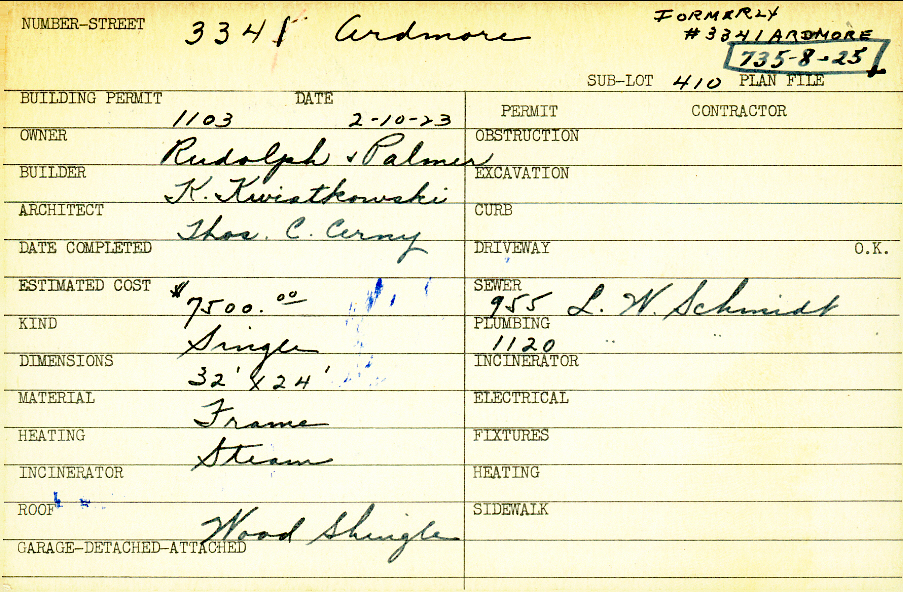 FORMERLY
NUMBER-STREET 3341 Ardmore #3341 ARDMORE
735-8-25
SUB-LOT 410 PLAN FILE
BUILDING PERMIT DATE PERMIT CONTRACTOR
1103 2-10-23
OWNER Rudolph & Palmer OBSTRUCTION
BUILDER K. Kwiatkowski EXCAVATION
ARCHITECT Thos. C. Cerny CURB
DATE COMPLETED DRIVEWAY O.K.
ESTIMATED COST $7500.00 SEWER 955 L. W. Schmidt
KIND Single PLUMBING 1120
DIMENSIONS 32' x 24' INCINERATOR
MATERIAL Frame ELECTRICAL
HEATING Steam FIXTURES
INCINERATOR HEATING
ROOF Wood Shingle SIDEWALK
GARAGE-DETACHED-ATTACHED